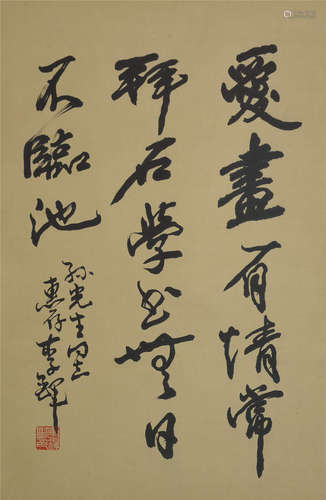 愛畫有情常
拜石學書無日
不臨池
孫光生同志
惠存 李鐸